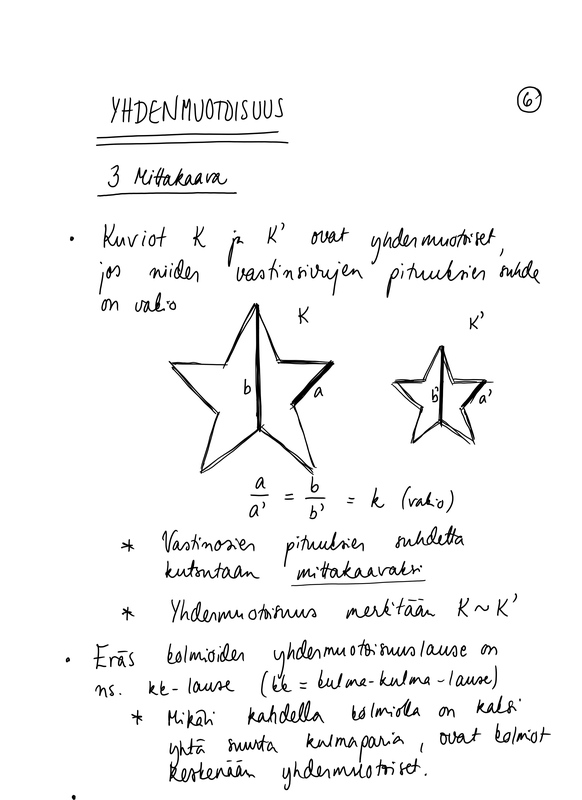 YHDENMUOTOISUUS
6
3 Mittakaava
• Kuviot K ja K' ovat yhdenmuotoiset,
jos niiden vastinsivujen pituuksien suhde
on vakio
K
K'
b
a
b'
a'
a/a' = b/b' = k (vakio)
* Vastinosien pituuksien suhdetta
kutsutaan mittakaavaksi
* Yhdenmuotoisuus merkitään K ~ K'
• Eräs kolmioiden yhdenmuotoisuuslause on
ns. kk-lause (kk = kulma-kulma-lause)
* Mikäli kahdella kolmiolla on kaksi
yhtä suurta kulmaparia, ovat kolmiot
keskenään yhdenmuotoiset.
•